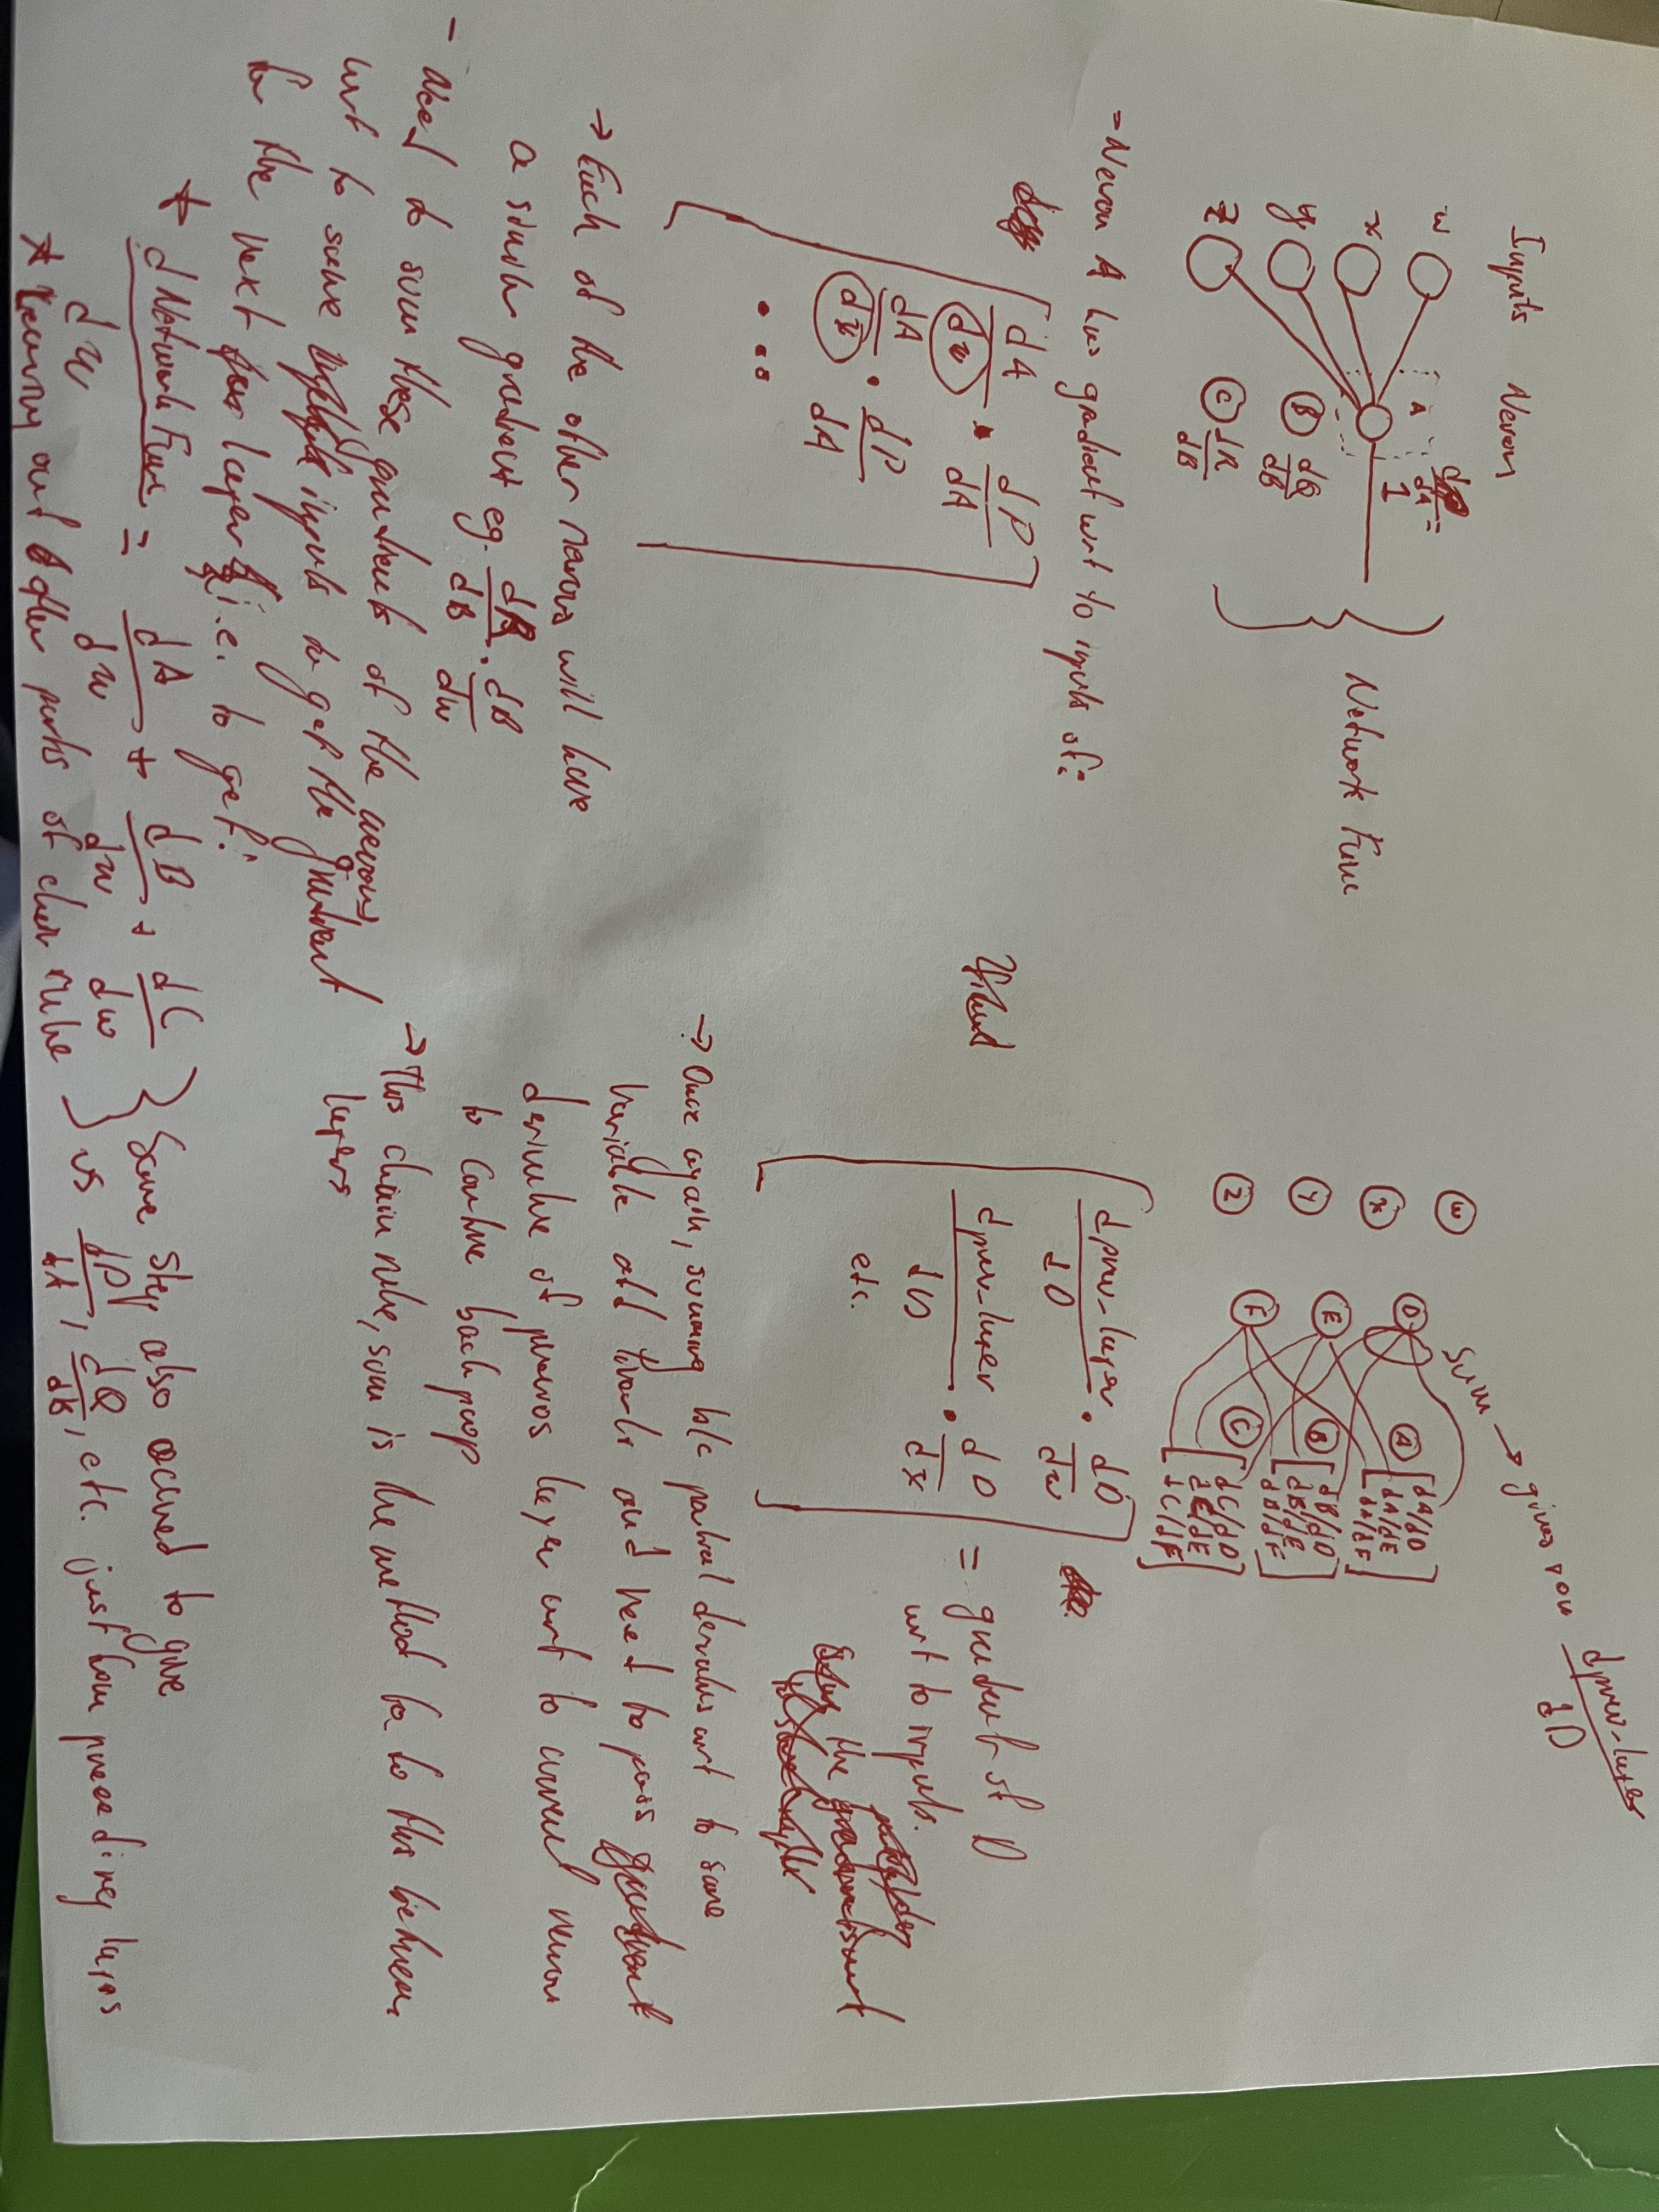 Inputs Neuron
w
x
y
z
A
dP
dA =
1
B dQ
dB
C dR
dB
} Network Func
- Neuron A has gradient wrt to inputs of:
dA
dw
.
dP
dA
dA
dx
.
dP
dA
...
→ Each of the other neurons will have
a similar gradient eg. dB . dB
dB dw
- Need to sum these gradients of the neurons
wrt to same inputs to get the gradient
for the next layer i.e. to get:
* d Network Func = dA + dB + dC
dw dw dw dw
} Same step also occured to give
* leaving out other parts of chain rule } us dP/dA, dQ/dB, etc. just from preceding layers
w
x
y
z
D
E
F
Sum → gives you dprev-layer
dD
A [dA/dD
dA/dE
dA/dF]
B [dB/dD
dB/dE
dB/dF]
C [dC/dD
dC/dE
dC/dF]
dprev-layer . dD
dD dw
dprev-layer . dD
dD dx
etc.
= gradient of D
wrt to inputs.
→ Once again, summing b/c partial derivatives wrt to same
variable and need to pass gradient
derivative of previous layer wrt to current neuron
to continue backprop
→ This chain rule, sum is the method for to this between
layers